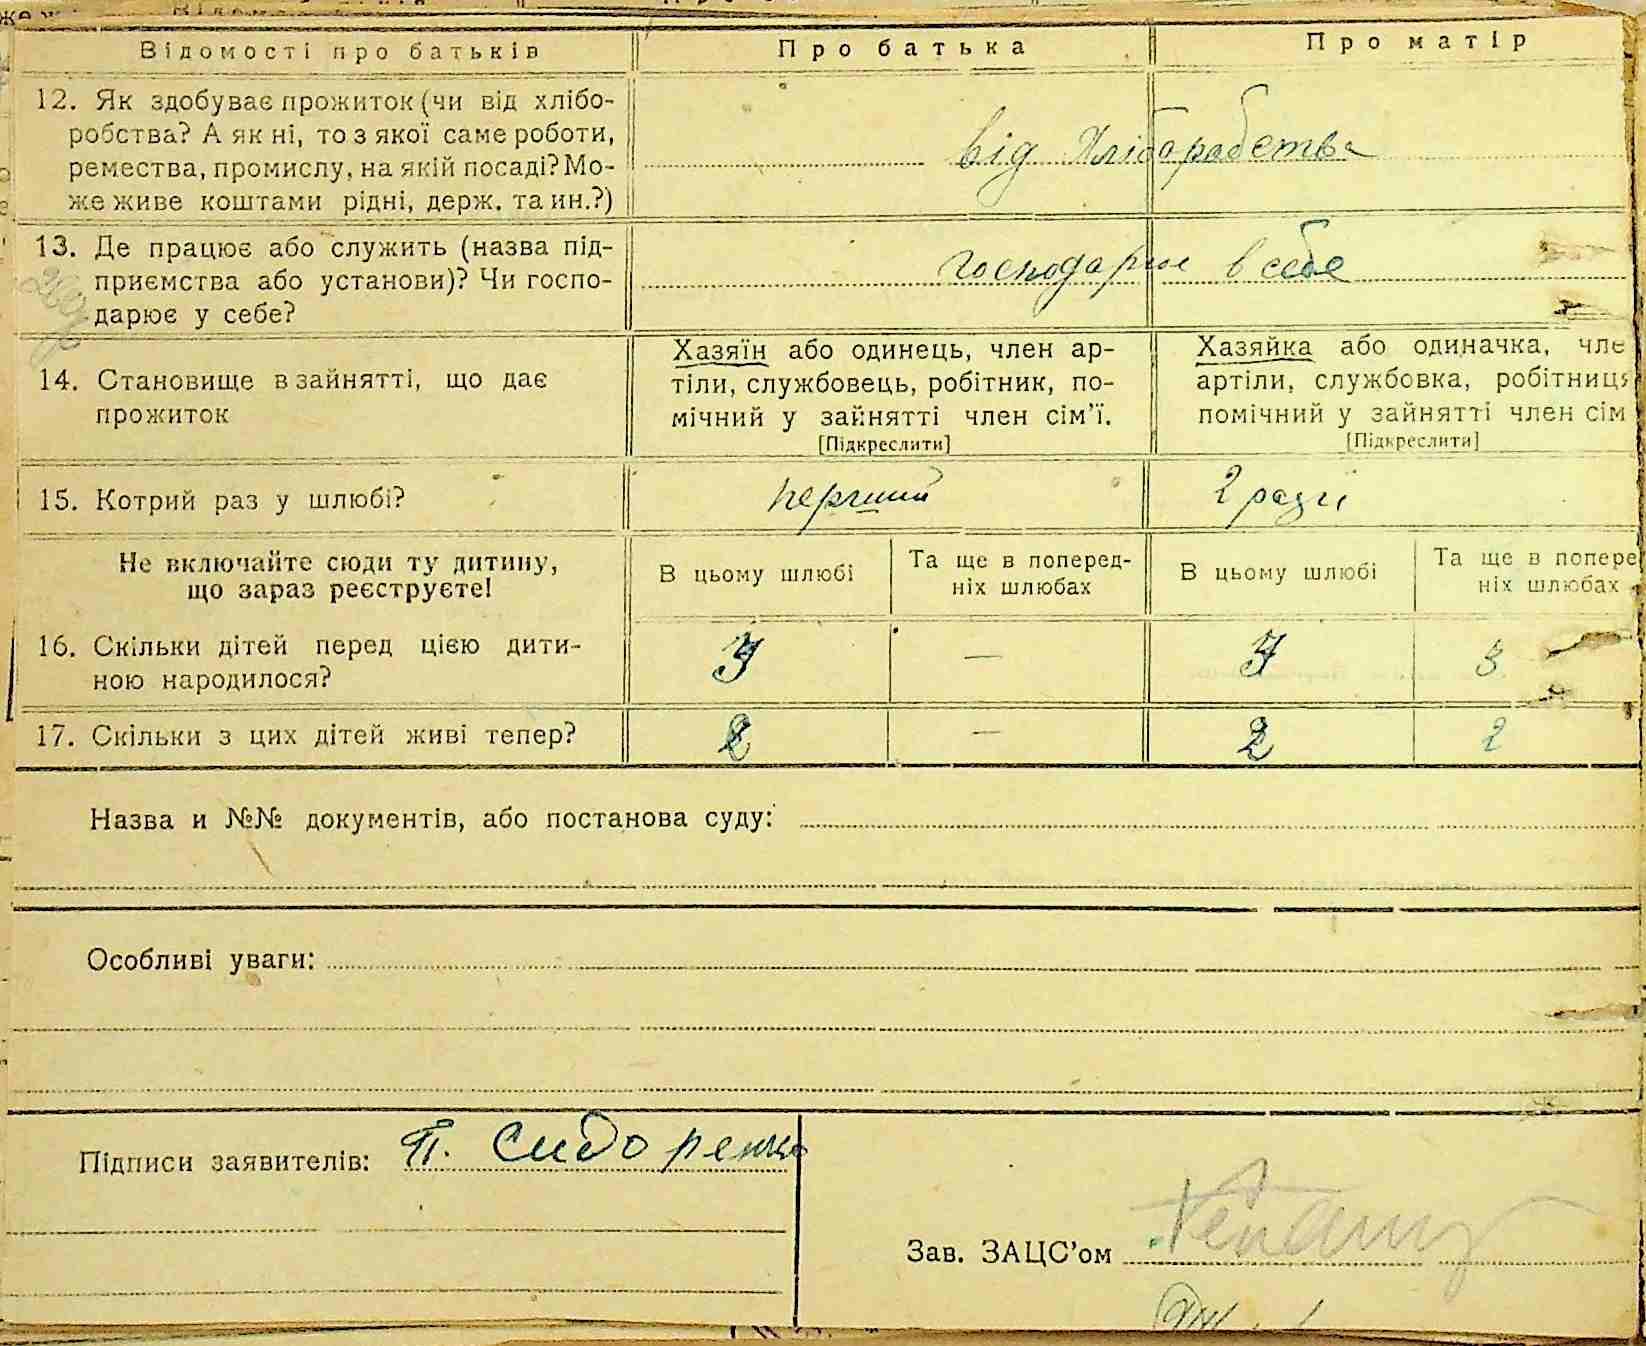 Відомості про батьків Про батька Про матір
12. Як здобуває прожиток (чи від хлібо-
робства? А як ні, то з якої саме роботи,
ремества, промислу, на якій посаді? Мо-
же живе коштами рідні, держ. та ин.?)
від Хліборобства
13. Де працює або служить (назва під-
приємства або установи)? Чи госпо-
дарює у себе?
господарює в себе
14. Становище в зайнятті, що дає
прожиток
Хазяїн або одинець, член ар-
тіли, службовець, робітник, по-
мічний у зайнятті член сім'ї.
[Підкреслити]
Хазяйка або одиначка, чле
артіли, службовка, робітниця
помічний у зайнятті член сім
[Підкреслити]
15. Котрий раз у шлюбі? перший 2 разгі
Не включайте сюди ту дитину,
що зараз реєструєте!
В цьому шлюбі
Та ще в поперед-
ніх шлюбах
В цьому шлюбі
Та ще в попере
ніх шлюбах
16. Скільки дітей перед цією дити-
ною народилося?
3 — 3 3
17. Скільки з цих дітей живі тепер? 2 — 2 2
Назва и №№ документів, або постанова суду:
Особливі уваги:
Підписи заявителів: П. Сидоренко
Зав. ЗАЦС'ом